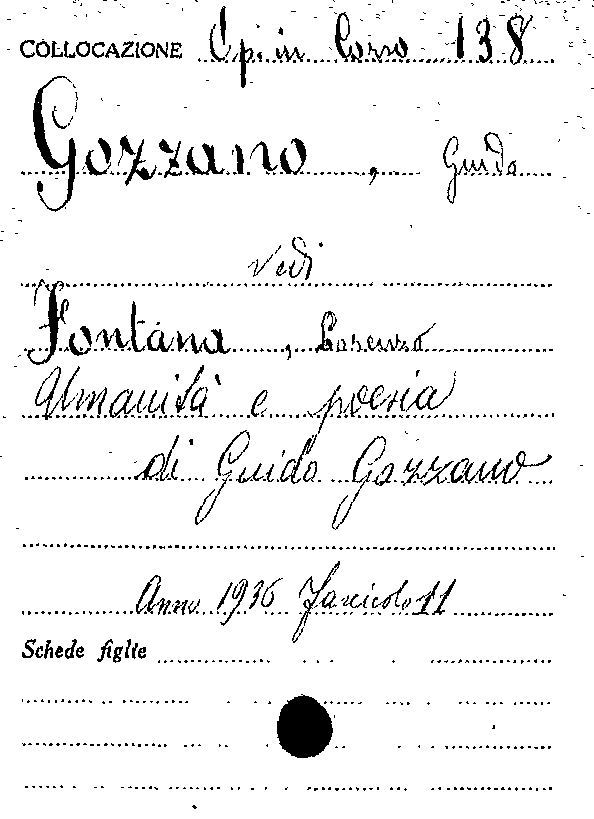 COLLOCAZIONE Op. in Corso 138
Gozzano, Guido
Vedi
Fontana, Lorenzo
Umanità e poesia
di Guido Gozzano
Anno 1936 Fascicolo 11
Schede figlie